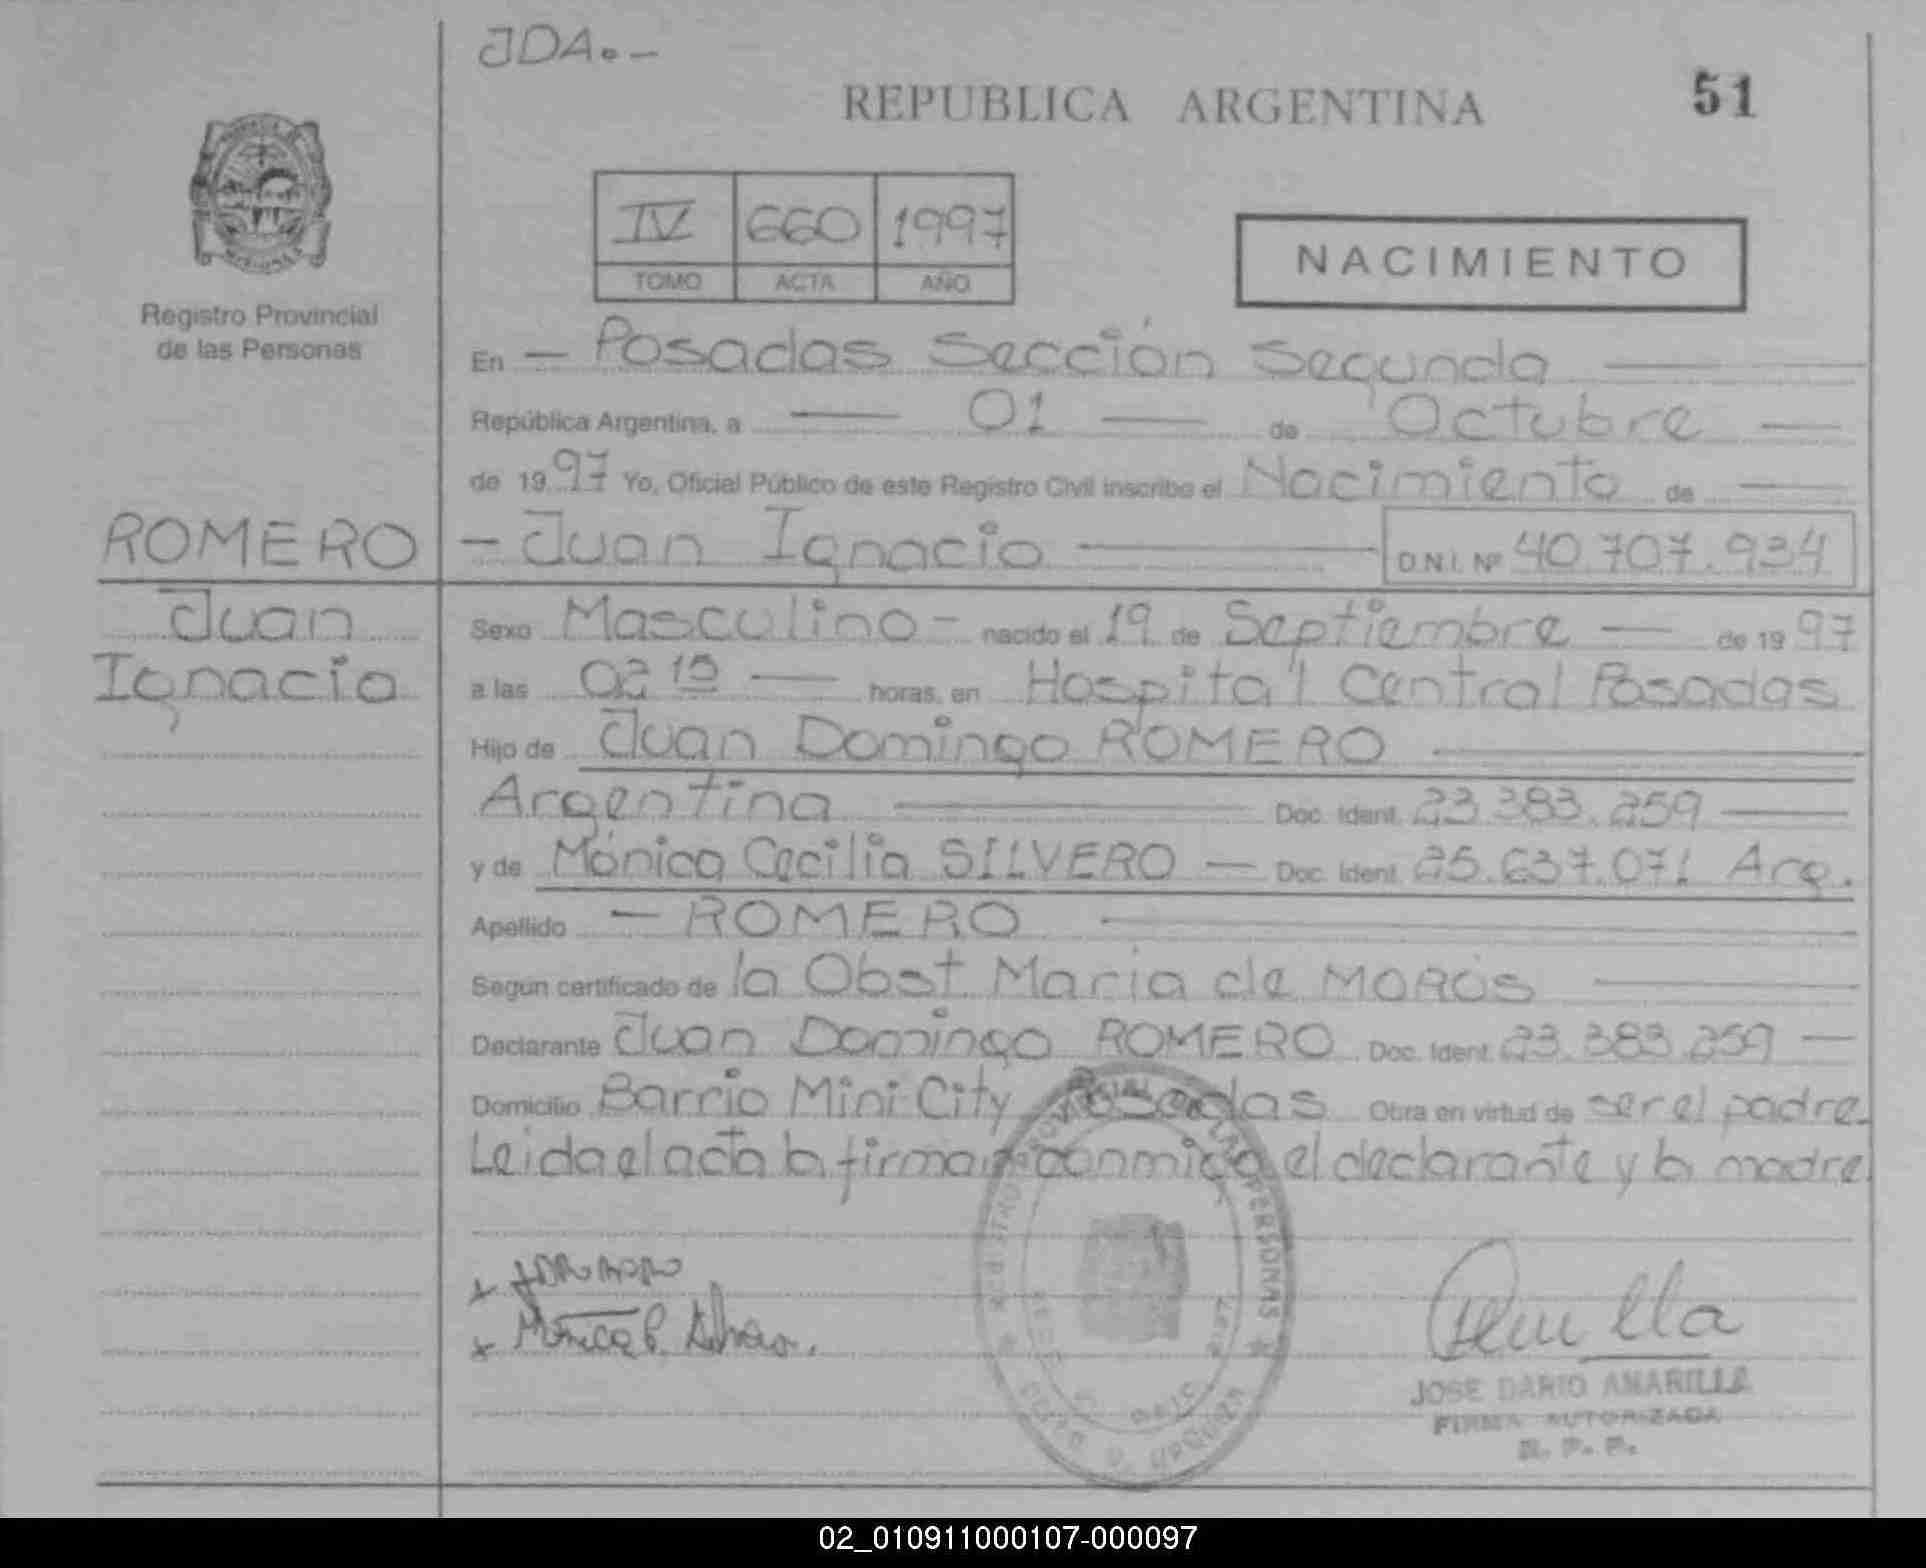 JDA.-
REPUBLICA ARGENTINA
51
IV 660 1997
TOMO ACTA AÑO
NACIMIENTO
Registro Provincial
de las Personas
En — Posadas Sección Segunda —
República Argentina, a — 01 — de Octubre —
de 1997 Yo, Oficial Público de este Registro Civil inscribo el Nacimiento de —
ROMERO
Juan
Ignacio
— Juan Ignacio — D.N.I. Nº 40.707.934
Sexo Masculino - nacido el 19 de Septiembre — de 1997
a las 02 15 — horas, en Hospital Central Posadas
Hijo de Juan Domingo ROMERO —
Argentina — Doc. Ident. 23.383.259 —
y de Mónica Cecilia SILVERO — Doc. Ident. 25.637.071 Arg.
Apellido — ROMERO —
Segun certificado de la Obst Maria de MOROS —
Declarante Juan Domingo ROMERO Doc. Ident. 23.383.259 —
Domicilio Barrio Mini City Posadas Obra en virtud de ser el padre-
Leida el acta la firman conmigo el declarante y la madre
x
x Monica C. Silvero.
REGISTRO PROVINCIAL DE LAS PERSONAS
JOSE DARIO AMARILLA
FIRMA AUTORIZADA
R. P. P.
02_010911000107-000097